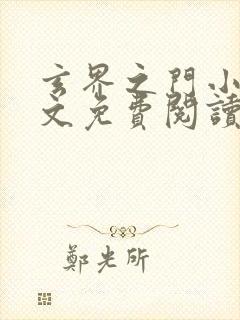 玄界之門小
文免費閱讀
鄭光所